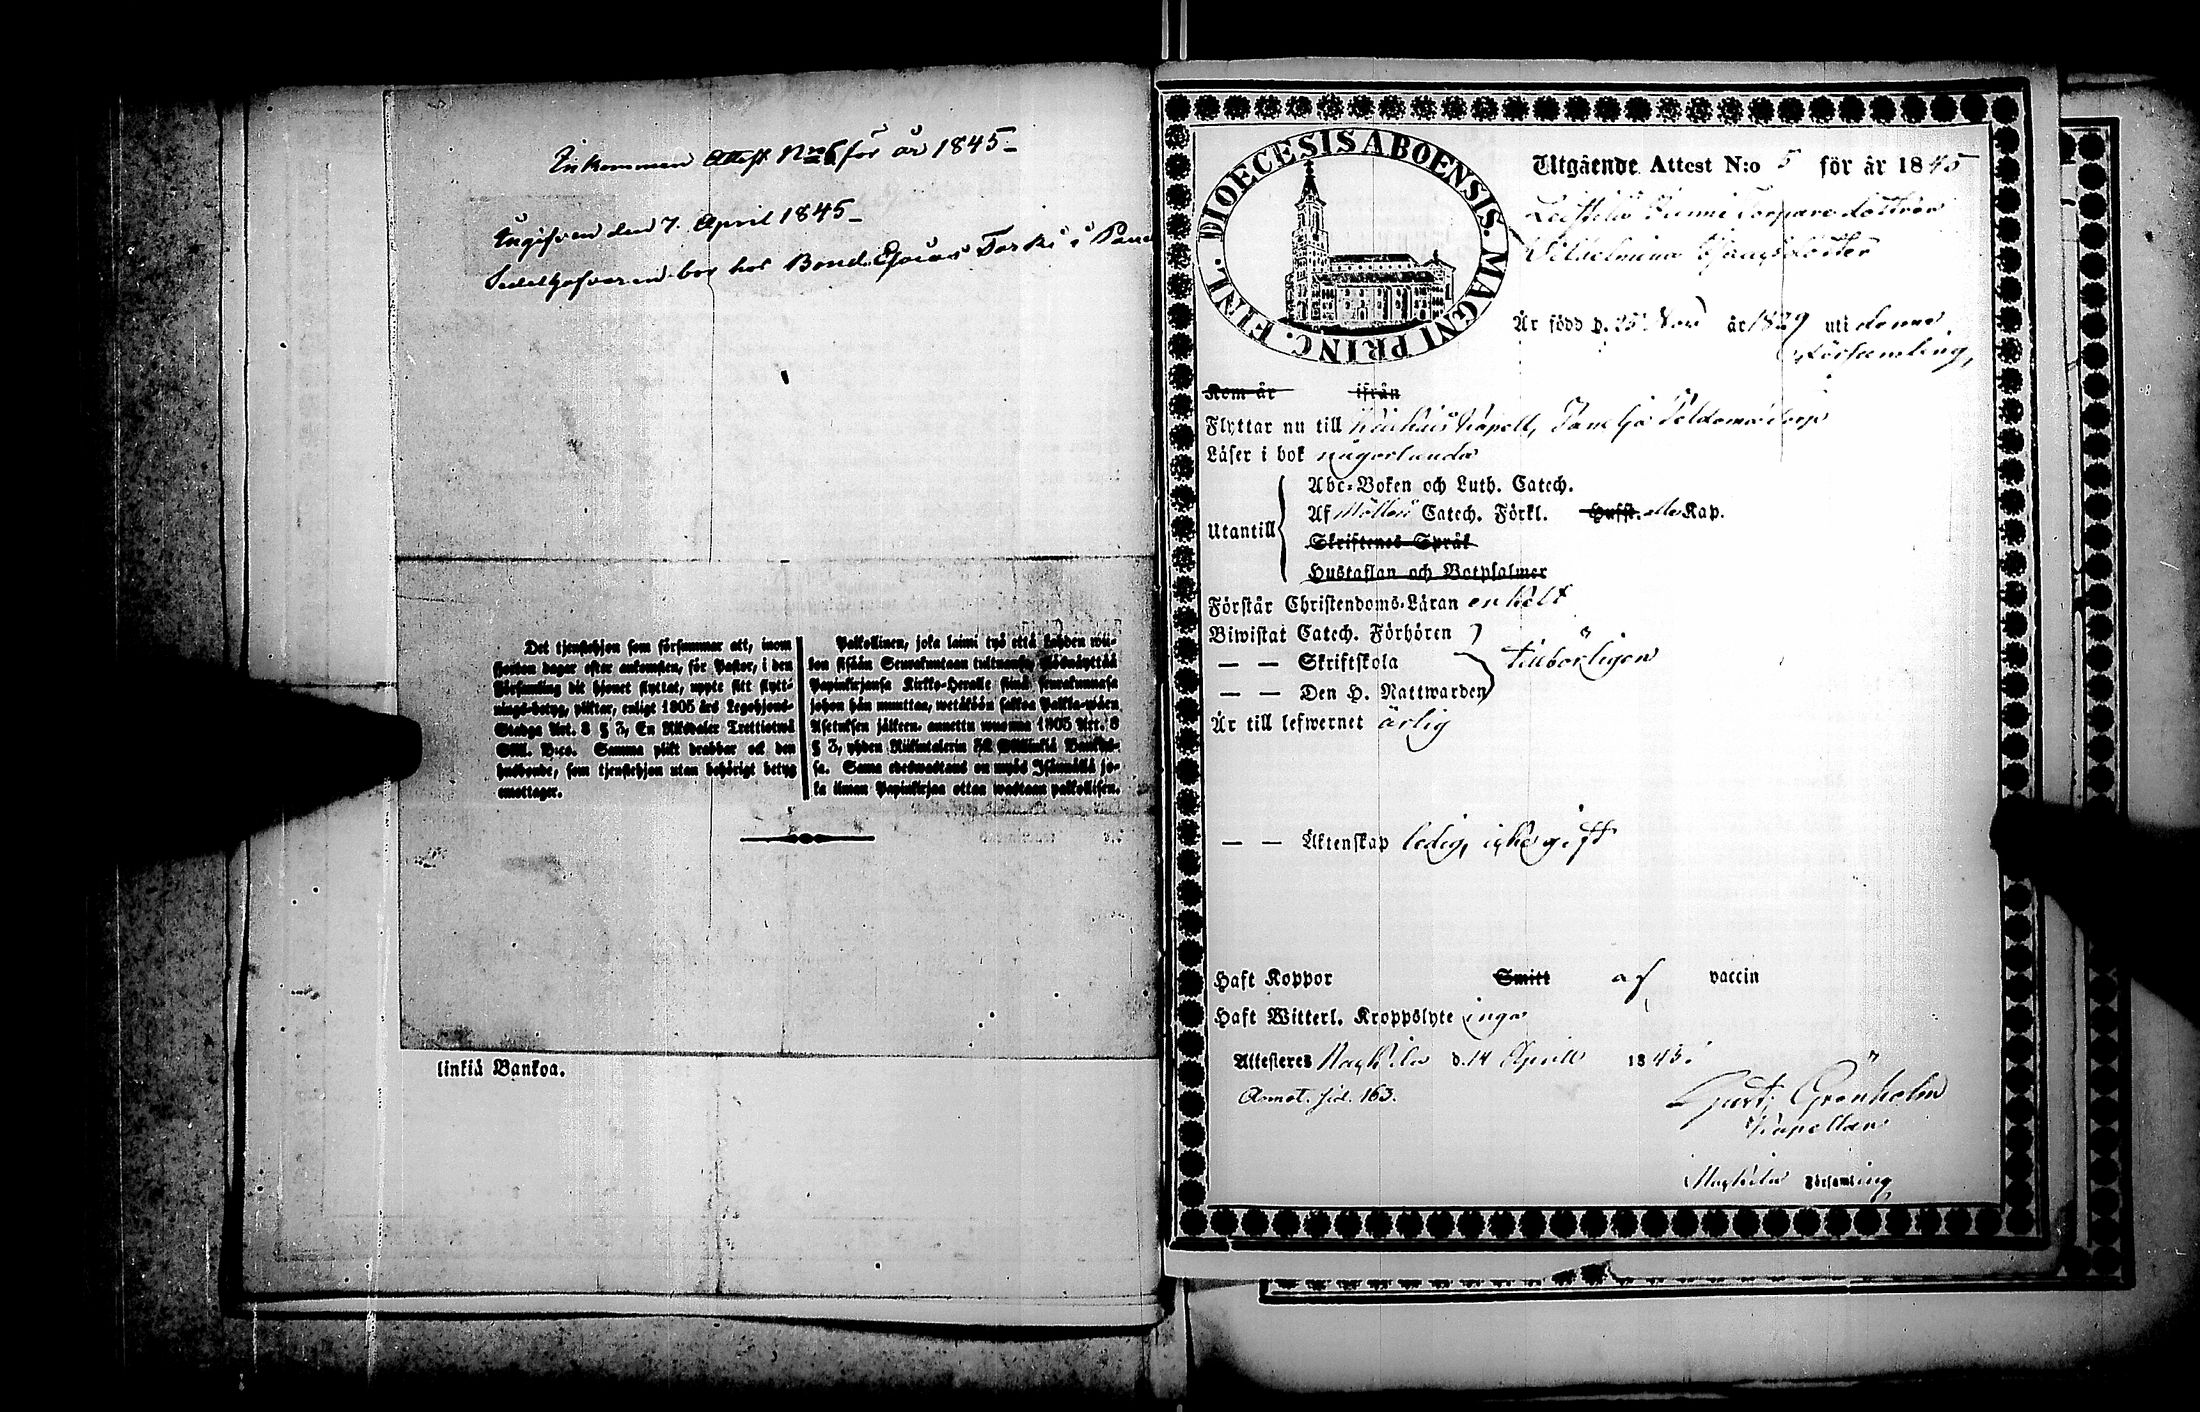 Inkommen Attest No 6 för år 1845
Ingifven den 7. April 1845
bor hos Bond. Esaias i
Det tjenstehjon som försummar att, inom
fjorton dagar efter ankomsten, för Pastor, i den
Församling dit hjonet flyttat, uppte sitt flytt-
nings-betyg, pliktar, enligt 1805 års Legohjons-
Stadga Art. 8 § 3, En Riksdaler Trettiotwå
Sk. B:co. Samma plikt drabbar ock den
husbonde, som tjenstehjon utan behörigt betyg
emottager.
Palkollinen, joka laimi lyö että kahden wii-
kon sisään Seurakuntaan tultuansa, ylösnäyttää
Papinkirjansa Kirkko-Herralle siinä seurakunnasa
johon hän muuttaa, wetäköön sakkoa Palkka-wäen
Asetuksen jälkeen, annettu wuonna 1805 Art. 8
§ 3, yhden Riikintalerin 32 Killinkiä Bankos-
sa. Sama edeswastaus on myös Isännällä jo-
ka ilman Papinkirjaa ottaa wastaan palkollisen.
linkiä Bankoa.
DIOECESIS ABOENSIS. MAGNI PRINC. FINL.
Utgående Attest N:o 5 för år 1845
Torpare dottren
Är född d. 25 Nov år 1829 uti denna
Församling,
Kom år ifrån
Flyttar nu till Kapell,
Läser i bok någorlunda
Utantill
Abc-Boken och Luth. Catech.
Af Möllers Catech. Förkl. Hufst. alla Kap.
Skriftenes Språk
Hustaflan och Botpsalmer
Förstår Christendoms-Läran enkelt
Biwistat Catech. Förhören
— — Skriftskola tillbörligen
— — Den H. Nattwarden
Är till lefwernet ärlig
— — Äktenskap ledig, icke gift
Haft Koppor Smitt af vaccin
Haft Witterl. Kroppslyte inga
Attesteres d. 14 April 1845.
Annot. sid. 163.
Gust. Grönholm
Kapellan
Församling